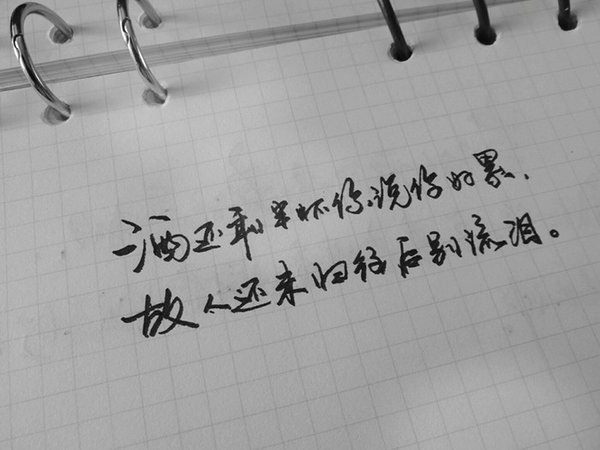 酒还剩半杯你说你好累,
故人还未归往后别流泪。